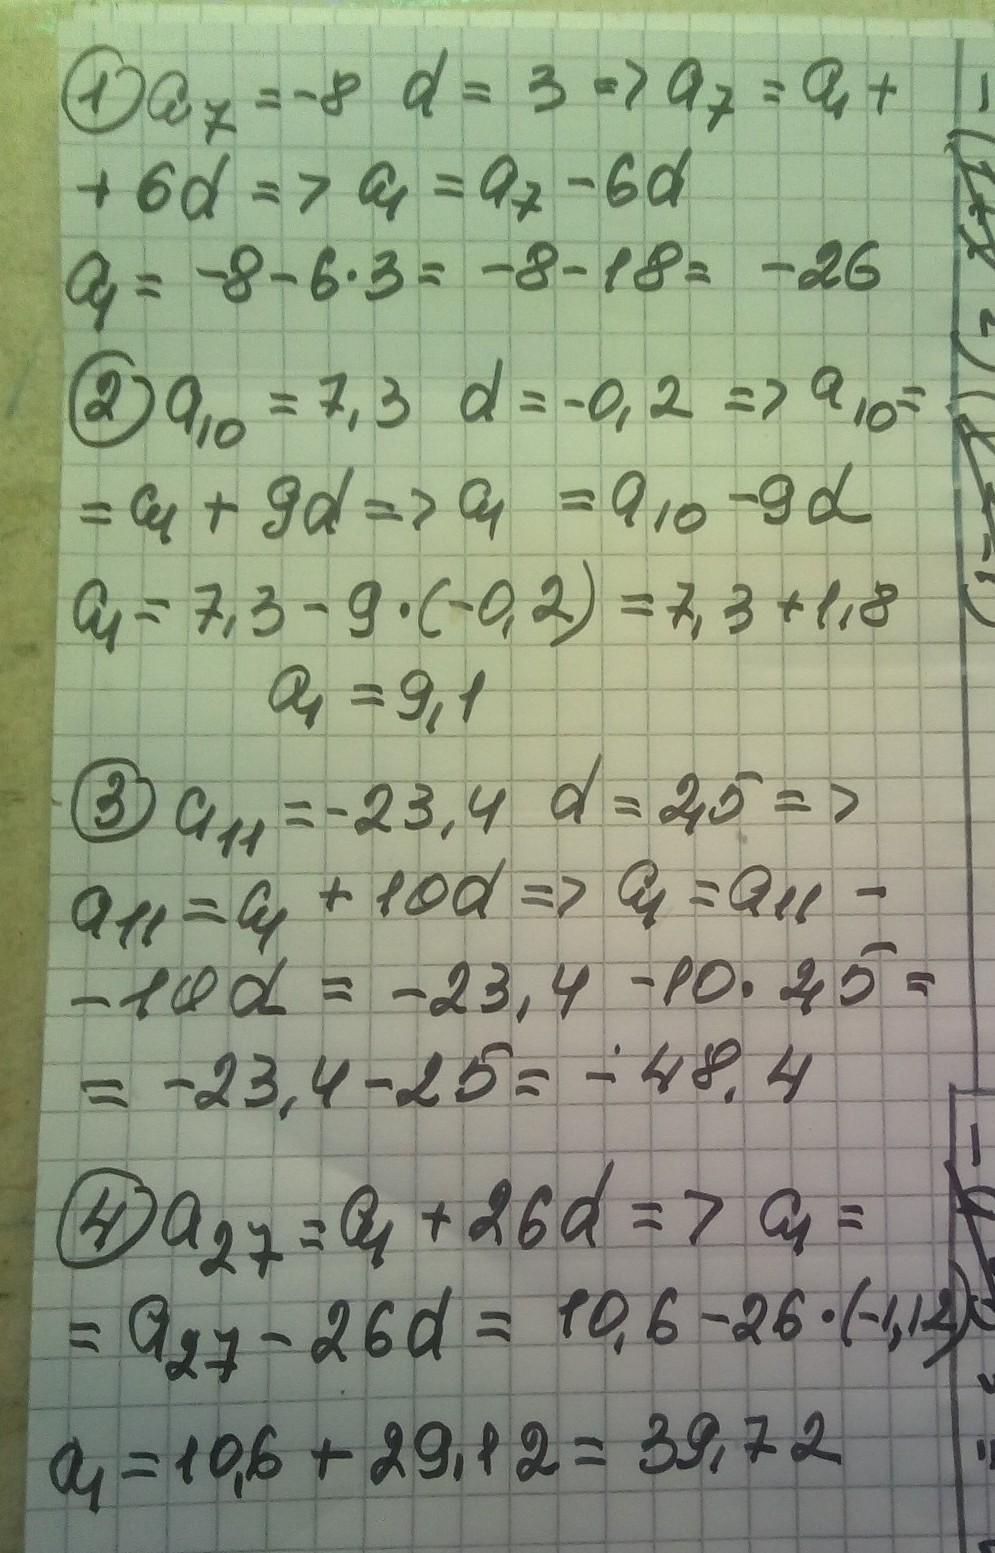 ① a₇ = -8 d = 3 => a₇ = a₁ +
+ 6d => a₁ = a₇ - 6d
a₁ = -8 - 6·3 = -8 - 18 = -26
② a₁₀ = 7,3 d = -0,2 => a₁₀ =
= a₁ + 9d => a₁ = a₁₀ - 9d
a₁ = 7,3 - 9·(-0,2) = 7,3 + 1,8
a₁ = 9,1
③ a₁₁ = -23,4 d = 2,5 =>
a₁₁ = a₁ + 10d => a₁ = a₁₁ -
- 10d = -23,4 - 10·2,5 =
= -23,4 - 25 = -48.4
④ a₂₇ = a₁ + 26d => a₁ =
= a₂₇ - 26d = 10,6 - 26·(-1,12)
a₁ = 10,6 + 29,12 = 39,72